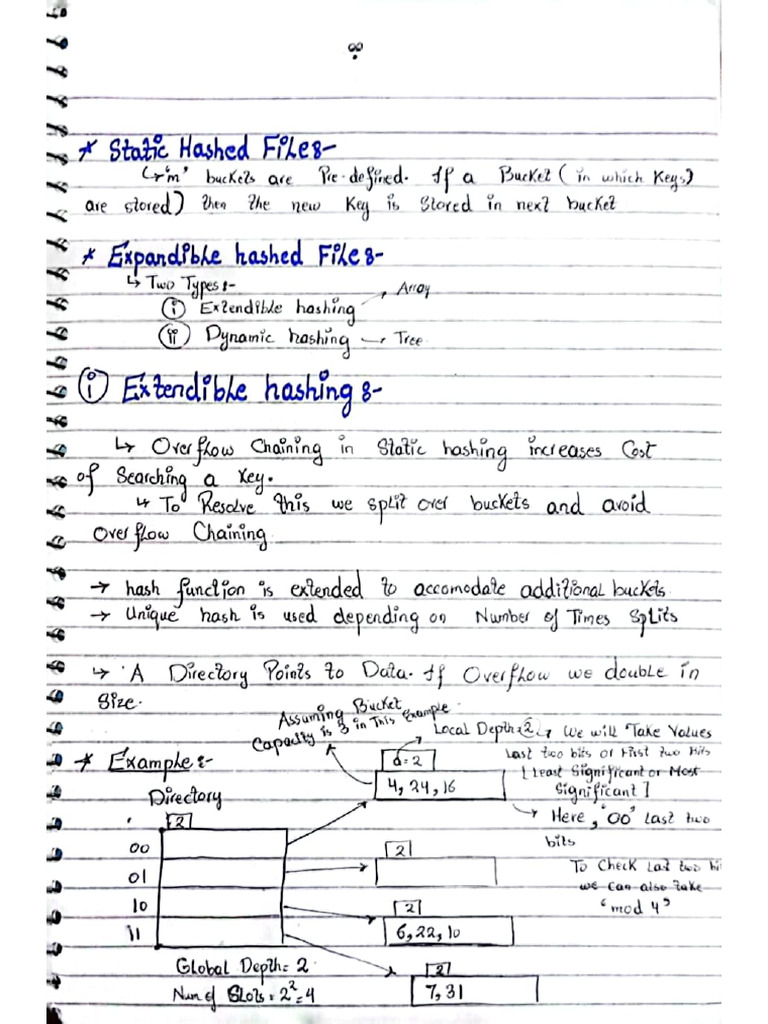 * Static Hashed File :-
↳ 'm' buckets are Pre-defined. If a Bucket (in which Keys)
are stored) then the new Key is Stored in next bucket
* Expandible hashed File :-
↳ Two Types :-
(i) Extendible hashing → Array
(ii) Dynamic hashing → Tree
(i) Extendible hashing :-
↳ Overflow Chaining in Static hashing increases Cost
of Searching a Key.
↳ To Resolve this we split over buckets and avoid
Overflow Chaining
→ hash function is extended to accomodate additional buckets.
→ Unique hash is used depending on Number of Times Splits
↳ A Directory Points to Data. If Overflow we double in
Size.
Assuming Bucket
Capacity is 3 in This Example
* Example :-
Local Depth = 2 → We will Take Values
Last two bits or First two Bits
[Least Significant or Most
Significant]
→ Here, '00' last two
bits
d = 2
4, 24, 16
Directory
2
00
01
10
11
2
To Check Last two bi
we can also take
'mod 4'
2
6, 22, 10
2
7, 31
Global Depth = 2
Num of Slots = 2² = 4